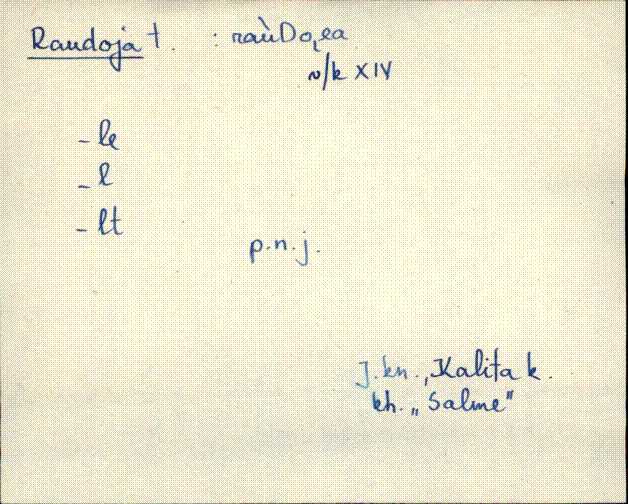 Raudoja t. : raùDo̬ea
v/k XIV
- le
- l
- lt
p.n.j.
J. kn., Kalita k.
kh. „Salme"